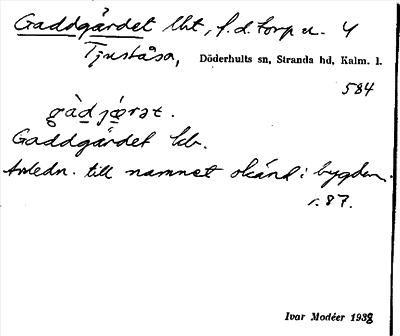 Gaddgårdet lht, f.d. torp u. 4
Tjuståsa, Döderhults sn, Stranda hd, Kalm. l.
584
gàdjǽrət.
Gaddgårdet kb.
Anledn. till namnet okänd i bygden.
s. 87.
Ivar Modéer 1938